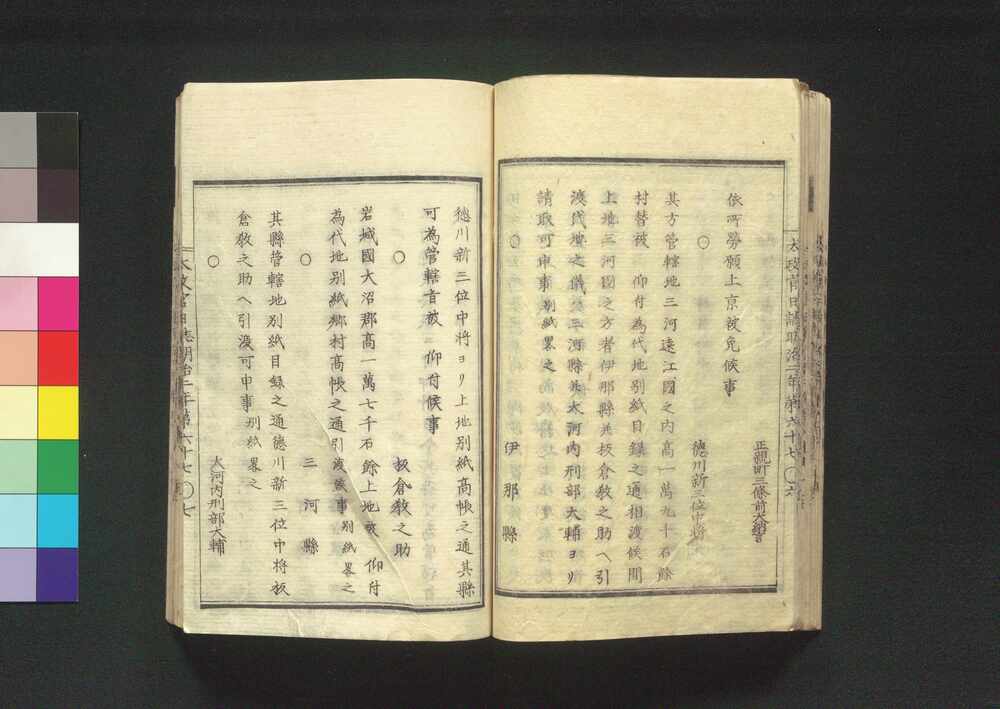 正親町三條前大納言
依所勞願上京被免候事
○
德川新三位中將
其方管轄地三河遠江國之內高一萬九十石餘
村替被　仰付為代地別紙目錄之通相渡候間
上地三河國之方者伊那縣并板倉敎之助ヘ引
渡代地之儀ハ三河縣并大河內刑部大輔ヨリ
請取可申事別紙畧之
○
伊那縣
德川新三位中將ヨリ上地別紙高帳之通其縣
可為管轄旨被　仰付候事
○
板倉敎之助
岩城國大沼郡高一萬七千石餘上地被　仰付
為代地別紙鄉村高帳之通引渡候事別紙畧之
○
三河縣
其縣管轄地別紙目錄之通德川新三位中將板
倉敎之助ヘ引渡可申事別紙畧之
○
大河內刑部大輔
太政官日誌明治二年第六十七　○六
太政官日誌明治二年第六十七　○七